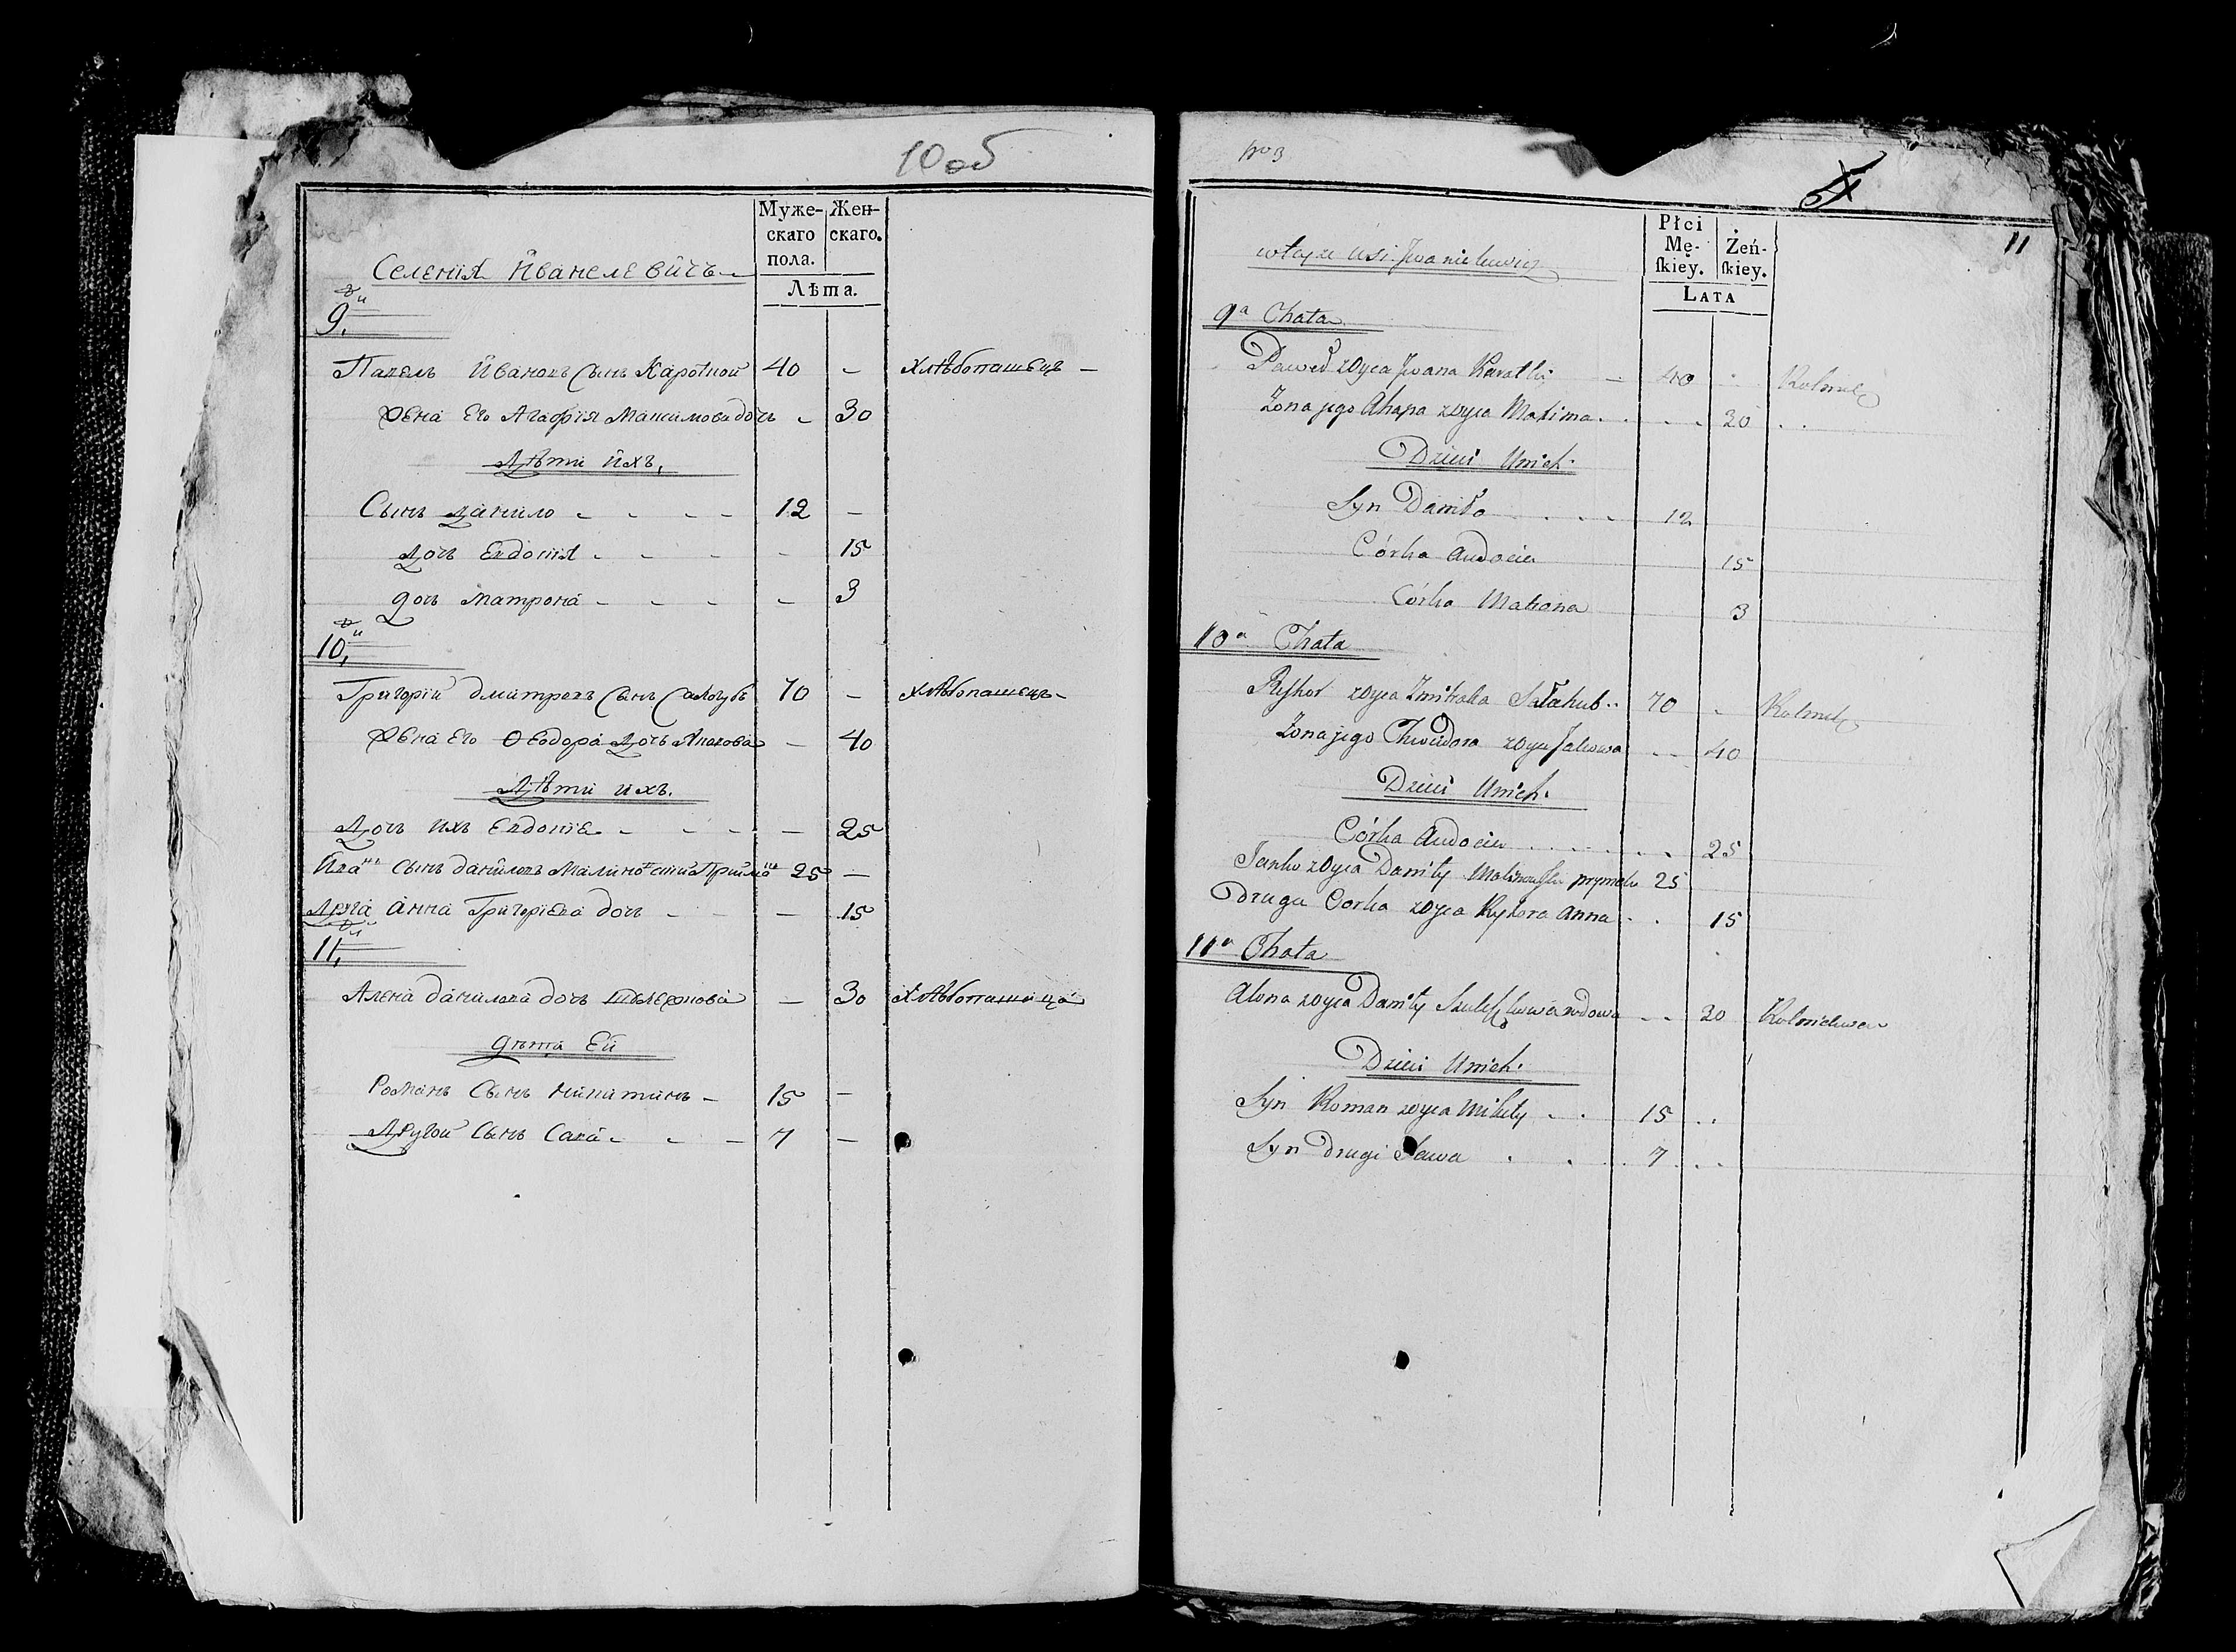 10 об
Муже- Жен-
скаго скаго.
пола.
Лѣта.
Селенія Иванелевичъ
9.
Павелъ Ивановъ Сынъ Кароткой 40 - хлѣбопашецъ -
Жена Его Агафія Максимова дочь - 30
Дѣти ихъ,
Сынъ данило - - - - 12 -
дочь Евдокія - - - - 15
дочь матрона - - - - 3
10,
Григорій дмитревъ Сынъ Салогубъ 70 - хлѣбопашецъ -
Жена Его Ѳеодора дочь Якакова - 40
Дѣти ихъ.
Дочь ихъ Евдокіе - - - - 25
Иванъ Сынъ даниловъ Малиновскій 25 -
Друга анна Григоріева дочь - - 15
11,
Алена данилова дочь - 30 хлѣбопашица
дѣти Ей
Романъ Сынъ никитинъ - 15 -
Другой Сынъ Сава - - - 7 -
No 3
11
Płci
Mę- Żeń-
skiey. skiey.
LATA
wteyże wsi Iwanielewicz
9a Chata
Paweł zoyca Jwana Karotki - 40 - Rolnik
Żona jego Ahapa zoyca Maxima . . . . 30 . .
Dzieci Unich.
Syn Daniło . . . 12
Córka Audocia 15
Córka Matrona 3
10a Chata
Ryhor zoyca Zmitraka Sałahub .. 70 - Rolnik
Żona jego Chwiedora zoyca Jakowa - - 40
Dzieci Unich.
Córka Audocia . . . . . . . 25
Janko zoyca Daniły Malinowski prymak 25
Druga Corka zoyca Ryhora Anna . . 15
11a Chata
Alona zoyca Daniły wdowa - - 30 Rolniczka
Dzieci Unich.
Syn Roman zoyca Mikity . . 15 . .
Syn drugi Sawa . . . 7 . .